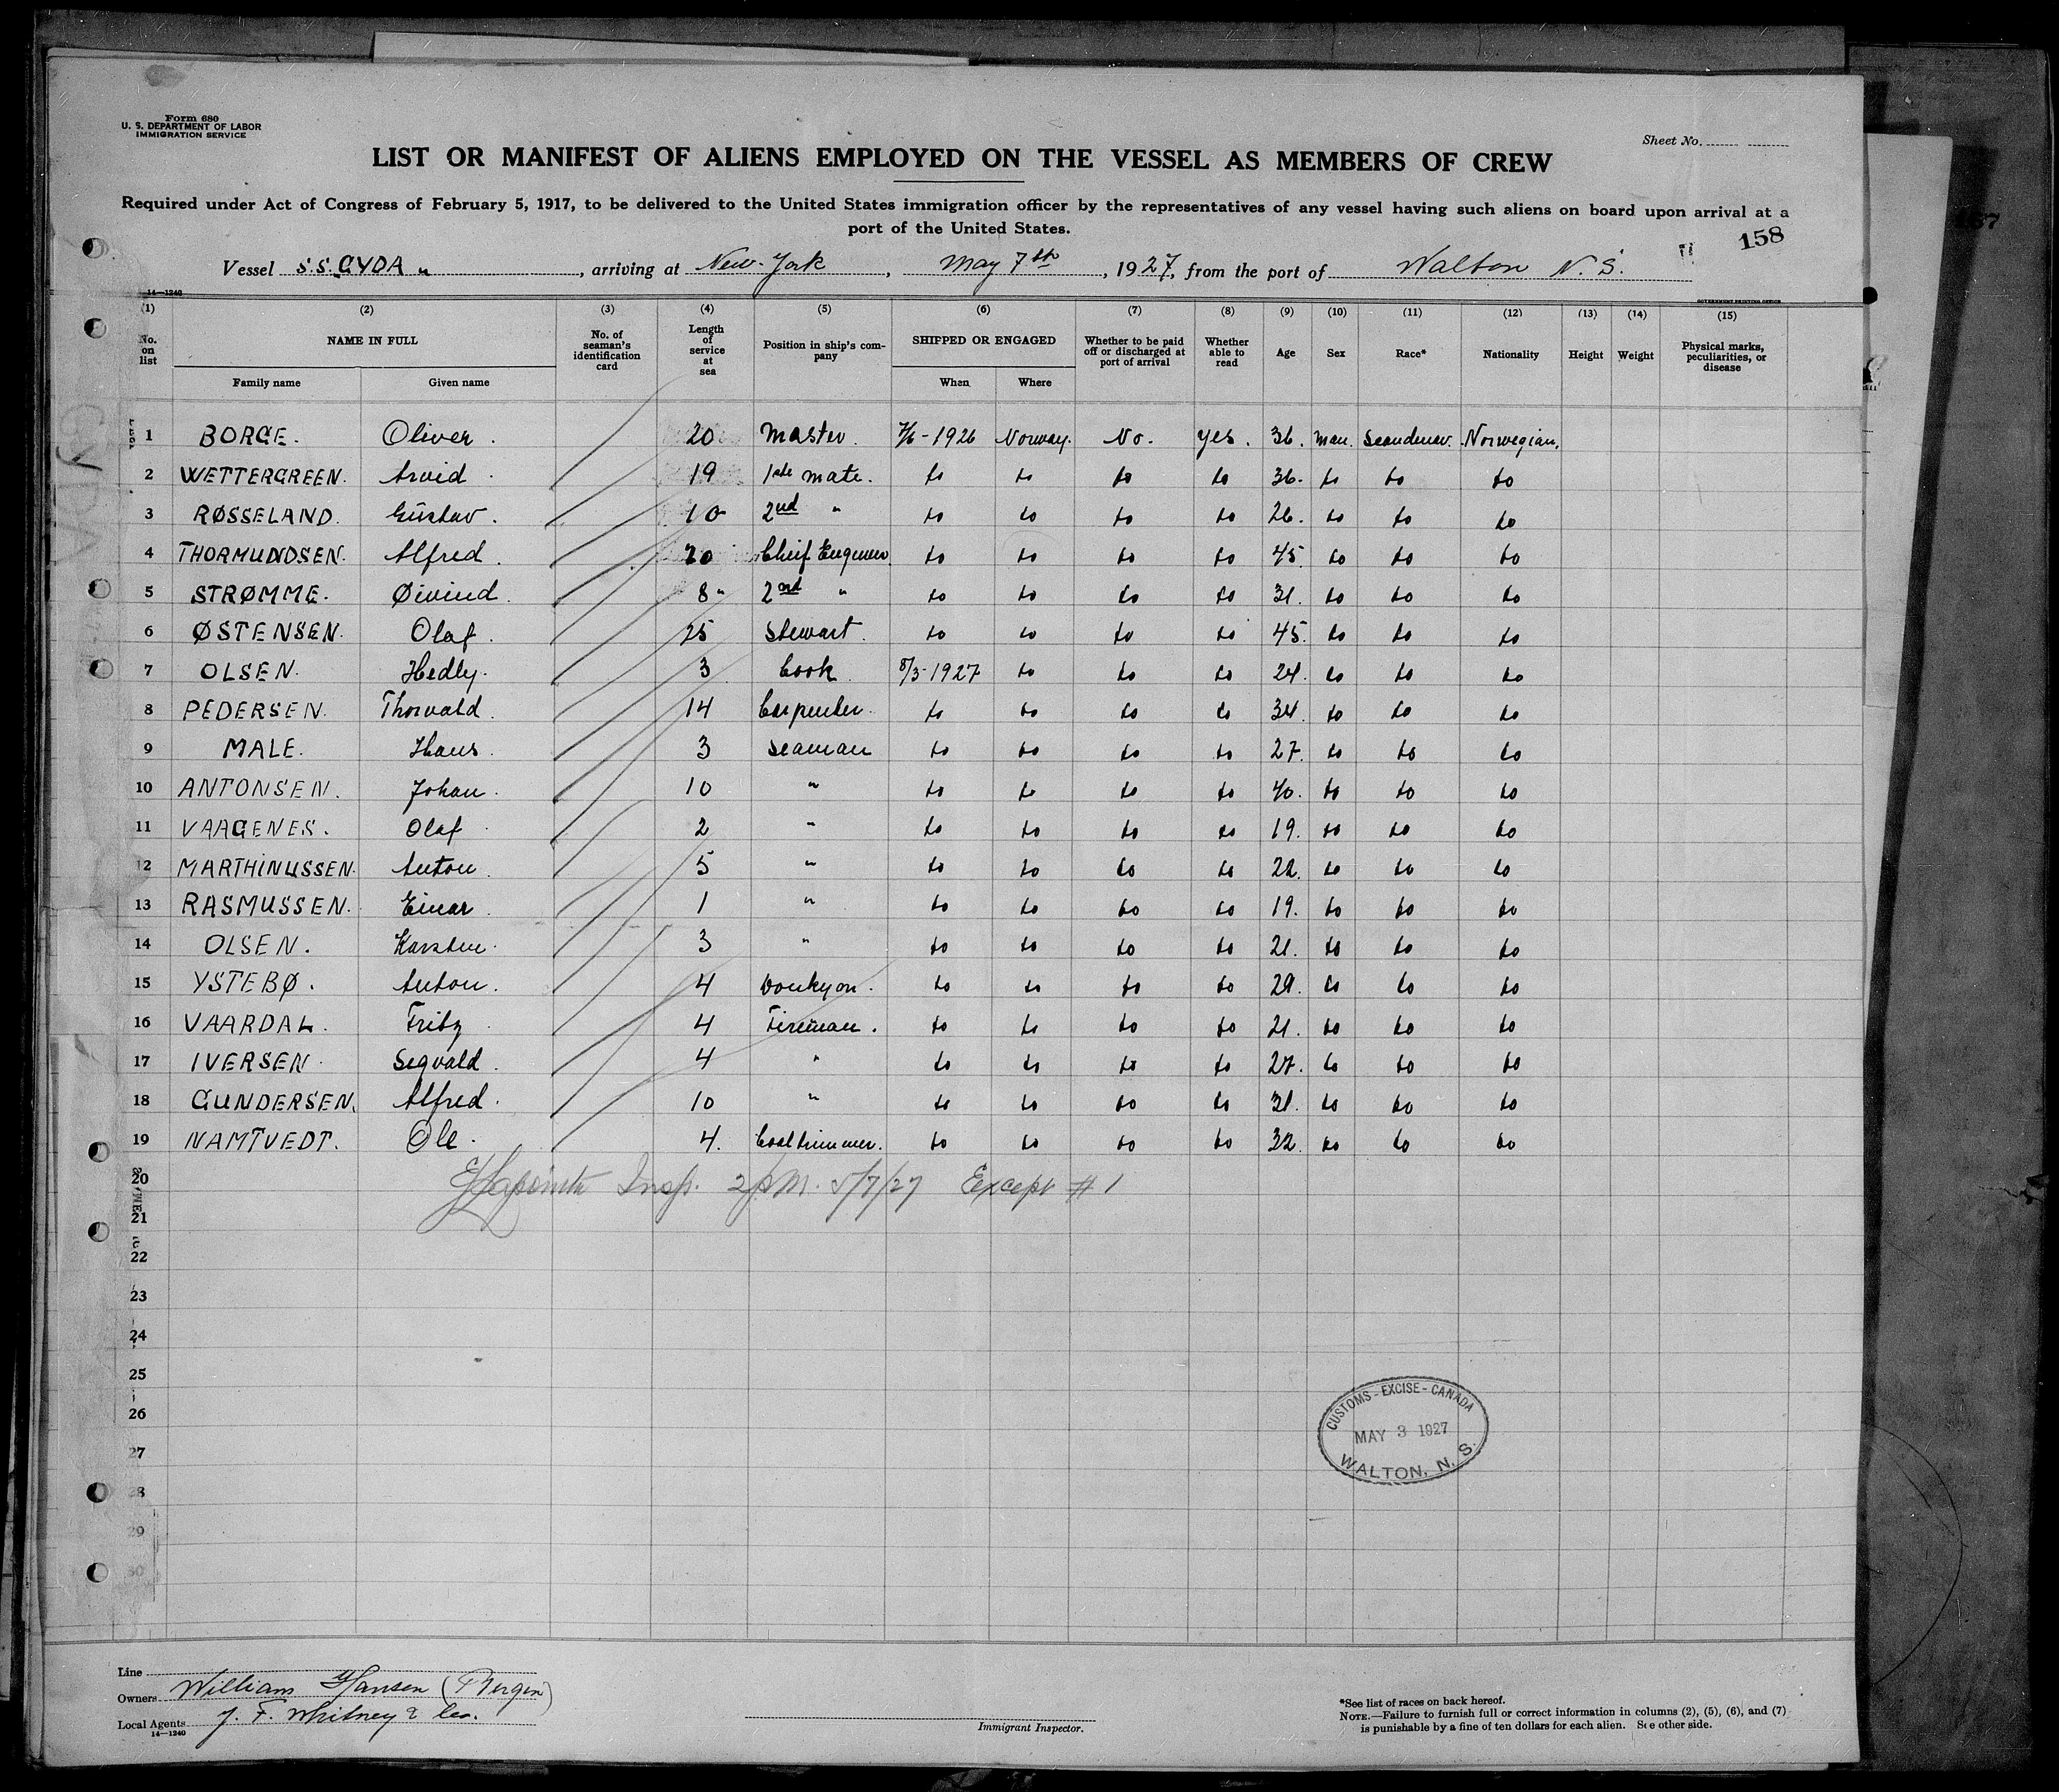 Form 680
U. S. DEPARTMENT OF LABOR
IMMIGRATION SERVICE
Sheet No.
LIST OR MANIFEST OF ALIENS EMPLOYED ON THE VESSEL AS MEMBERS OF CREW
Required under Act of Congress of February 5, 1917, to be delivered to the United States immigration officer by the representatives of any vessel having such aliens on board upon arrival at a
port of the United States.
158
Vessel S.S. GYDA " , arriving at New-York , May 7th , 1927, from the port of Walton N. S.
14—1240
GOVERNMENT PRINTING OFFICE
(1) (2) (3) (4) (5) (6) (7) (8) (9) (10) (11) (12) (13) (14) (15)
No. on list NAME IN FULL No. of seaman's identification card Length of service at sea Position in ship's company SHIPPED OR ENGAGED Whether to be paid off or discharged at port of arrival Whether able to read Age Sex Race* Nationality Height Weight Physical marks, peculiarities, or disease
Family name Given name When Where
1 BORGE. Oliver. 20 Master. 7/6-1926 Norway. No. yes. 36. man. Scandinav. Norwegian.
2 WETTERGREEN. Arvid. 19 1ste mate. to to to to 36. to to to
3 RØSSELAND. Gustav. 10 2nd " to to to to 26. to to to
4 THORMUNDSEN. Alfred. 20 Cheif Engineer to to to to 45. to to to
5 STRØMME. Øivind. 8" 2nd " to to to to 31. to to to
6 ØSTENSEN. Olaf. 25 Stewart. to to to to 45. to to to
7 OLSEN. Hedly. 3 Cook. 8/3-1927 to to to 24. to to to
8 PEDERSEN. Thorvald. 14 Carpenter. to to to to 34. to to to
9 MALE. Hans. 3 Seaman to to to to 27. to to to
10 ANTONSEN. Johan. 10 " to to to to 40. to to to
11 VAAGENES. Olaf 2 " to to to to 19. to to to
12 MARTHINUSSEN. Anton. 5 " to to to to 22. to to to
13 RASMUSSEN. Einar. 1 " to to to to 19. to to to
14 OLSEN. Karsten. 3 " to to to to 21. to to to
15 YSTEBØ. Anton. 4 Donkyon. to to to to 29. to to to
16 VAARDAL. Fritz 4 Fireman. to to to to 21. to to to
17 IVERSEN. Sigvald. 4 " to to to to 27. to to to
18 GUNDERSEN. Alfred. 10 " to to to to 31. to to to
19 NAMTVEDT. Ole. 4. Coaltrimmer. to to to to 32. to to to
20 Insp. 2 P.M. 5/7/27 Except # 1
21
22
23
24
25
26
27
28
29
30
CUSTOMS - EXCISE - CANADA
MAY 3 1927
WALTON, N. S.
Line
Owners William Hansen (Bergen)
Local Agents J. F. Whitney & Co.
14—1240
Immigrant Inspector.
*See list of races on back hereof.
NOTE.—Failure to furnish full or correct information in columns (2), (5), (6), and (7)
is punishable by a fine of ten dollars for each alien. See other side.
GYDA